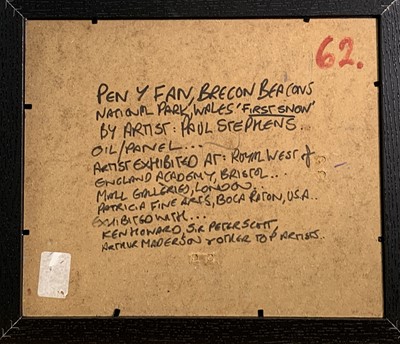 62.
PEN Y FAN, BRECON BEACONS
NATIONAL PARK, WALES 'FIRST SNOW'
BY ARTIST: PAUL STEPHENS.
OIL/PANEL...
ARTIST EXHIBITED AT: ROYAL WEST of
ENGLAND ACADEMY, BRISTOL...
MALL GALLERIES, LONDON.
PATRICIA FINE ARTS, BOCA RATON, USA..
EXHIBITED WITH...
KEN HOWARD, SIR PETER SCOTT,
ARTHUR MADERSON & OTHER TOP ARTISTS..